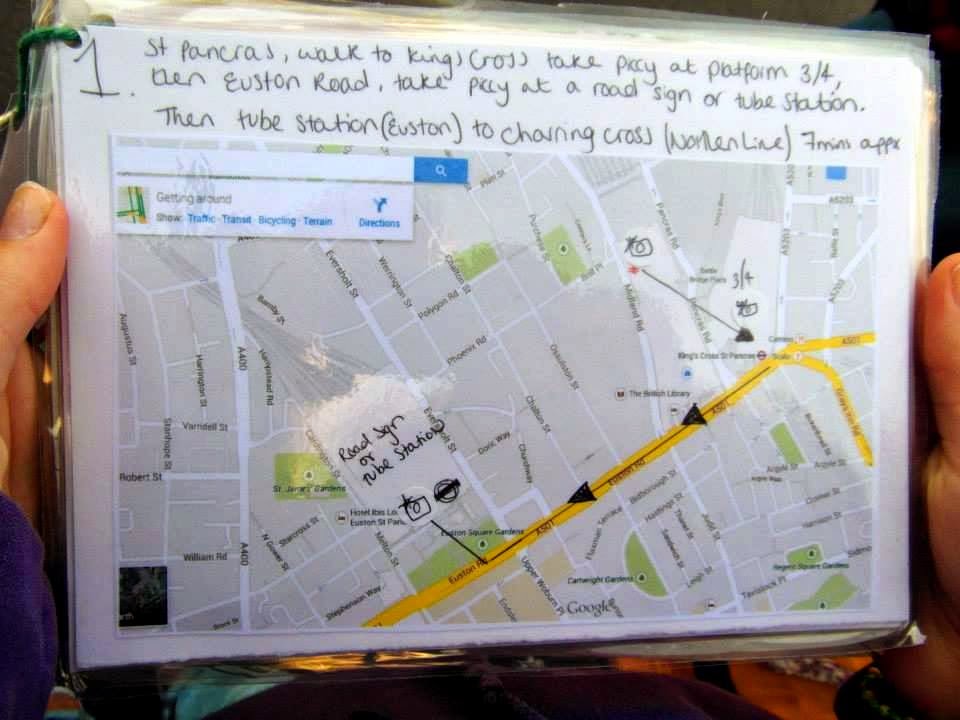 1. St Pancras, walk to Kings Cross take piccy at Platform 3/4,
then Euston Road, take piccy at a road sign or tube station.
Then tube station (Euston) to Charring Cross (Northern Line) 7mins appx
Getting around
Show: Traffic · Transit · Bicycling · Terrain
Directions
A5203
A5203
A5203
A400
Eversholt St
Werrington St
Chalton St
Polygon Rd
Phoenix Rd
Ossulston St
Midland Rd
Pancras Rd
Battle Bridge Place
3/4
King's Cross St Pancras
A501
The British Library
A501
Augustus St
Harrington St
A400
Hampstead Rd
Varndell St
Stanhope St
Robert St
St. James Gardens
Road Sign
or
tube Station
Eversholt St
Doric Way
Chalton St
Churchway
Euston Rd
Argyle St
Argyle St
Argyle Way
Cromer St
Harrison St
Bidborough St
Hastings St
Thanet St
Judd St
Sandwich St
Leigh St
Hotel Ibis Lo
Euston St Panc
Starcross St
N Gower St
Melton St
William Rd
A400
Euston Square Gardens
A501
Euston Rd
Upper Woburn Pl
Flaxman Terrace
Cartwright Gardens
Regent Square Gardens
Sidmo
Tavistock Pl
Stephenson Way
Google
arth